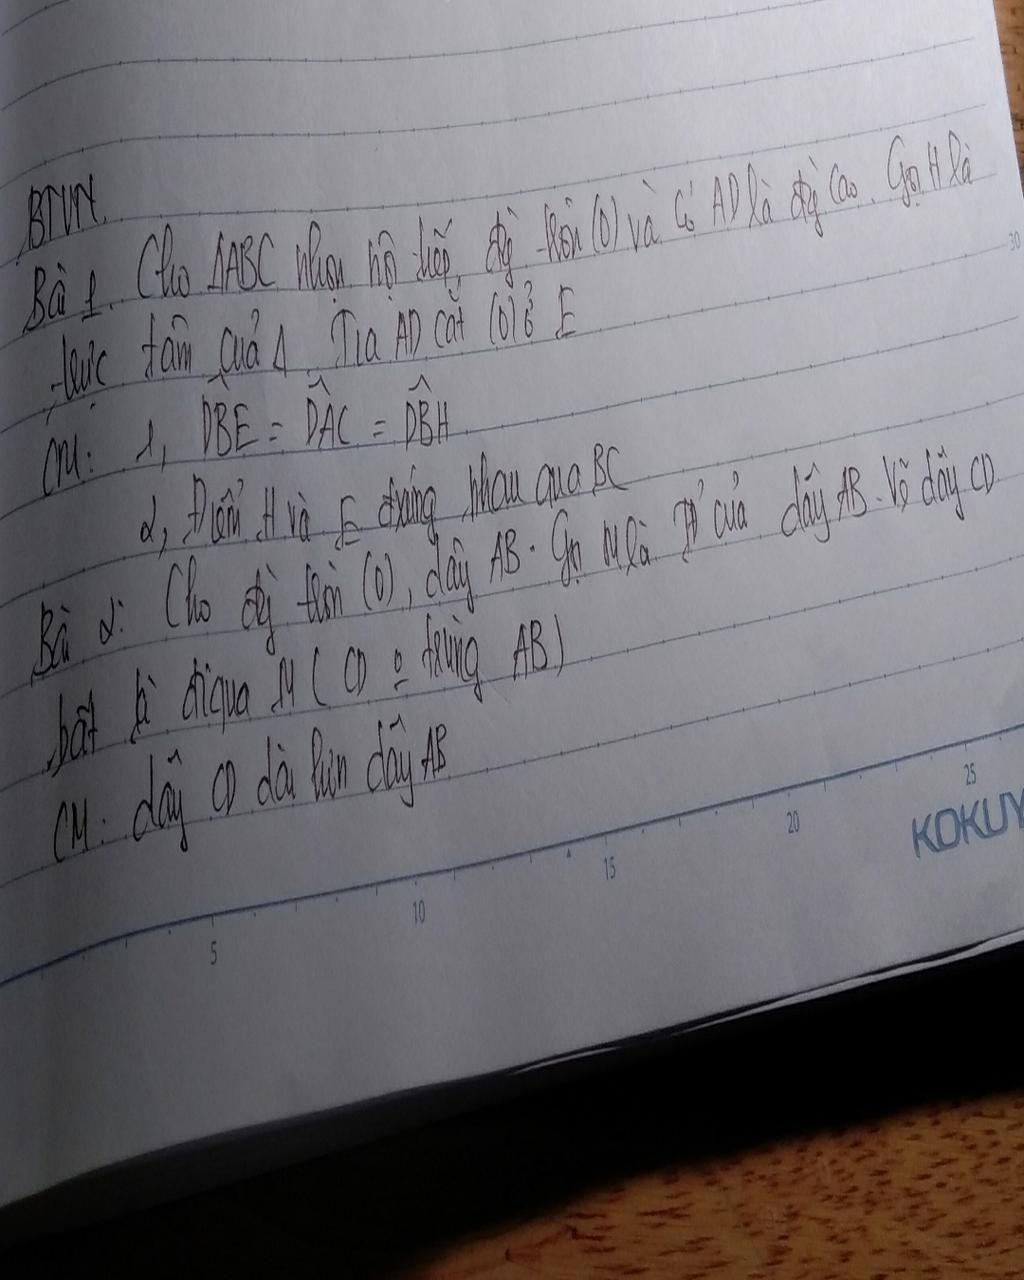 BTVN.
Bài 1. Cho ΔABC nhọn nội tiếp đg tròn (O) và có AD là đg cao. Gọi H là
trực tâm của Δ Tia AD cắt (O) ở E
CM: 1, D̂BE = D̂AC = D̂BH
2, Điểm H và E đxứng nhau qua BC
Bài 2: Cho đg tròn (O), dây AB. Gọi M là TĐ của dây AB. Vẽ dây CD
bất kì đi qua M ( CD o trùng AB)
CM: dây CD dài hơn dây AB
30
5 10 15 20 25
KOKUY